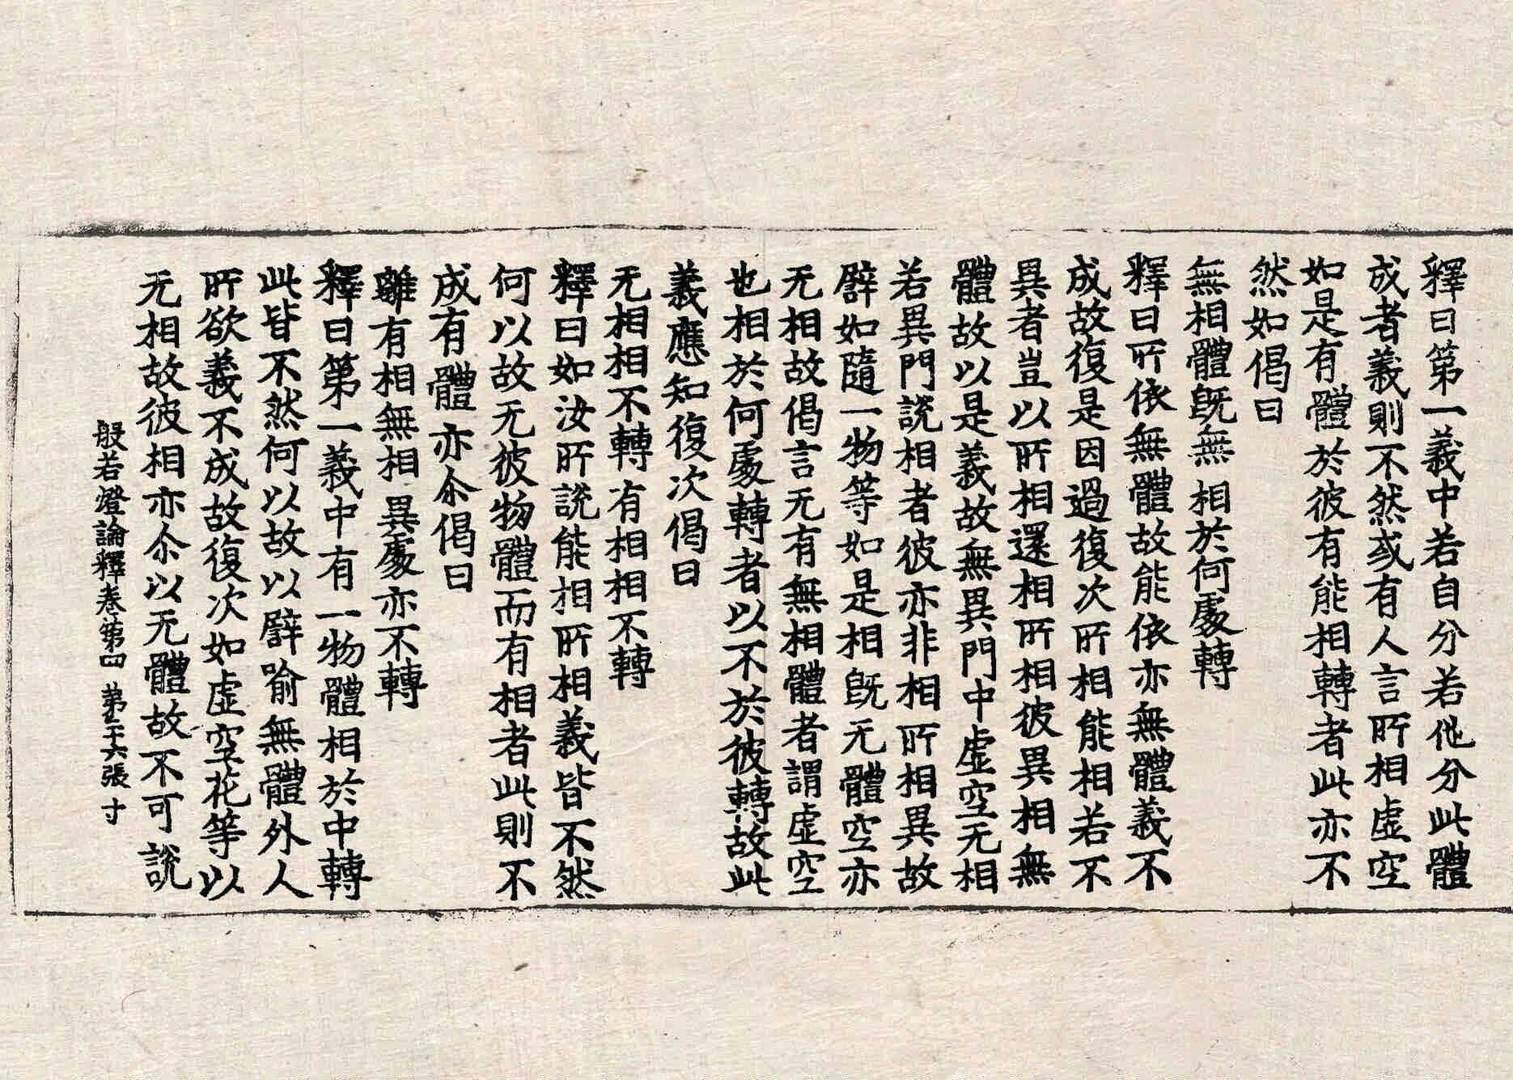 釋曰第一義中若自分若他分此體
成者義則不然或有人言所相虛空
如是有體於彼有能相轉者此亦不
然如偈曰
無相體旣無 相於何處轉
釋曰所依無體故能依亦無體義不
成故復是因過復次所相能相若不
異者豈以所相還相所相彼異相無
體故以是義故無異門中虛空无相
若異門說相者彼亦非相所相異故
辟如隨一物等如是相旣无體空亦
无相故偈言无有無相體者謂虛空
也相於何處轉者以不於彼轉故此
義應知復次偈曰
无相相不轉有相相不轉
釋曰如汝所說能相所相義皆不然
何以故无彼物體而有相者此則不
成有體亦尒偈曰
離有相無相 異處亦不轉
釋曰第一義中有一物體相於中轉
此皆不然何以故以辟喻無體外人
所欲義不成故復次如虛空花等以
无相故彼相亦尒以无體故不可說
般若燈論釋卷第四 第二十六張 寸